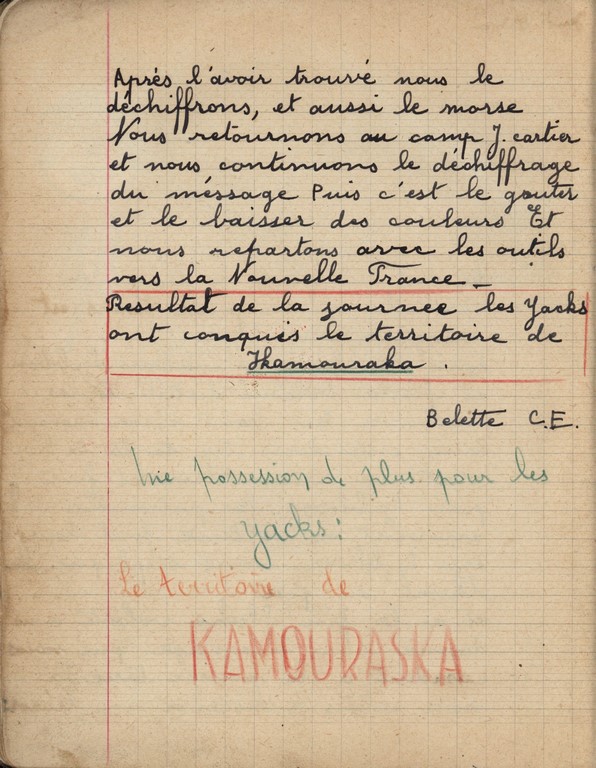 Après l'avoir trouvé nous le
déchiffrons, et aussi le morse
Nous retournons au camp J. cartier
et nous continuons le déchiffrage
du méssage Puis c'est le gouter
et le baisser des couleurs Et
nous repartons avec les outils
vers la Nouvelle France _
Resultat de la journee les Yacks
ont conquis le territoire de
Ikamouraka .
Belette C.E.
Une possession de plus pour les
yacks :
Le territoire de
KAMOURASKA